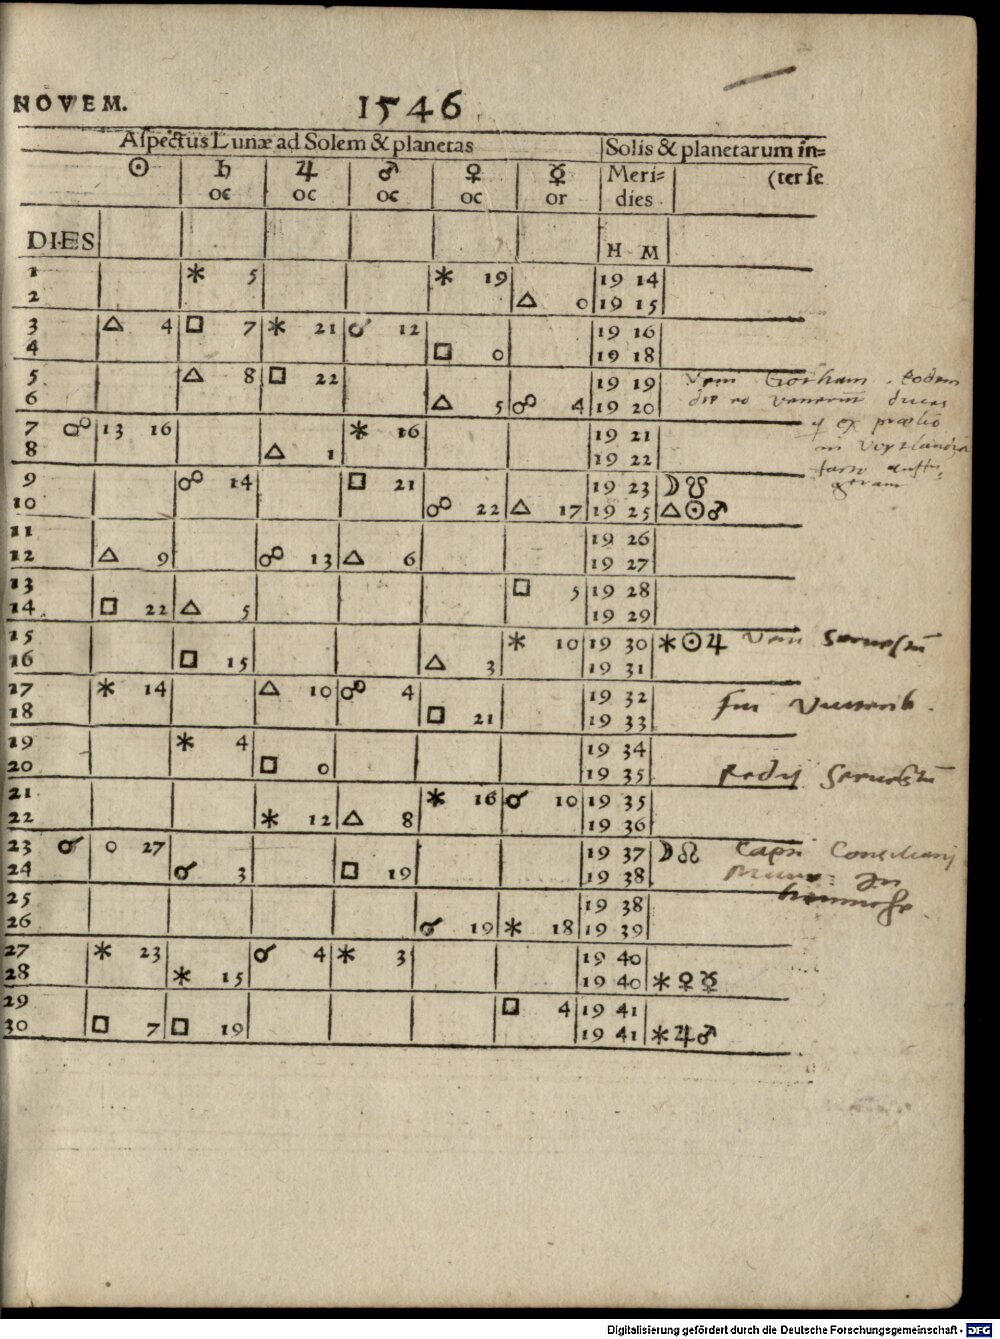 NOVEM. 1546
Aſpectus Lunæ ad Solem & planetas Solis & planetarum in=
☉ ♄ ♃ ♂ ♀ ☿ Meri= (ter ſe
oc oc oc oc or dies
DIES H M
1 ⚹ 5 ⚹ 19 19 14
2 △ 0 19 15
3 △ 4 □ 7 ⚹ 21 ☌ 12 19 16
4 □ 0 19 18
5 △ 8 □ 22 19 19
6 △ 5 ☍ 4 19 20
7 ☍ 13 16 ⚹ 16 19 21
8 △ 1 19 22
9 ☍ 14 □ 21 19 23 ☽ ☋
10 ☍ 22 △ 17 19 25 △ ☉ ♂
11 19 26
12 △ 9 ☍ 13 △ 6 19 27
13 □ 5 19 28
14 □ 22 △ 5 19 29
15 ⚹ 10 19 30 ⚹ ☉ ♃ Veni
16 □ 15 △ 3 19 31
17 ⚹ 14 △ 10 ☍ 4 19 32
18 □ 21 19 33 fui
19 ⚹ 4 19 34
20 □ 0 19 35
21 ⚹ 16 ☌ 10 19 35
22 ⚹ 12 △ 8 19 36
23 ☌ 0 27 19 37 ☽ ☊
24 ☌ 3 □ 19 19 38
25 19 38
26 ☌ 19 ⚹ 18 19 39
27 ⚹ 23 ☌ 4 ⚹ 3 19 40
28 ⚹ 15 19 40 ⚹ ♀ ☿
29 □ 4 19 41
30 □ 7 □ 19 19 41 ⚹ ♃ ♂
Digitalisierung gefördert durch die Deutsche Forschungsgemeinschaft - DFG